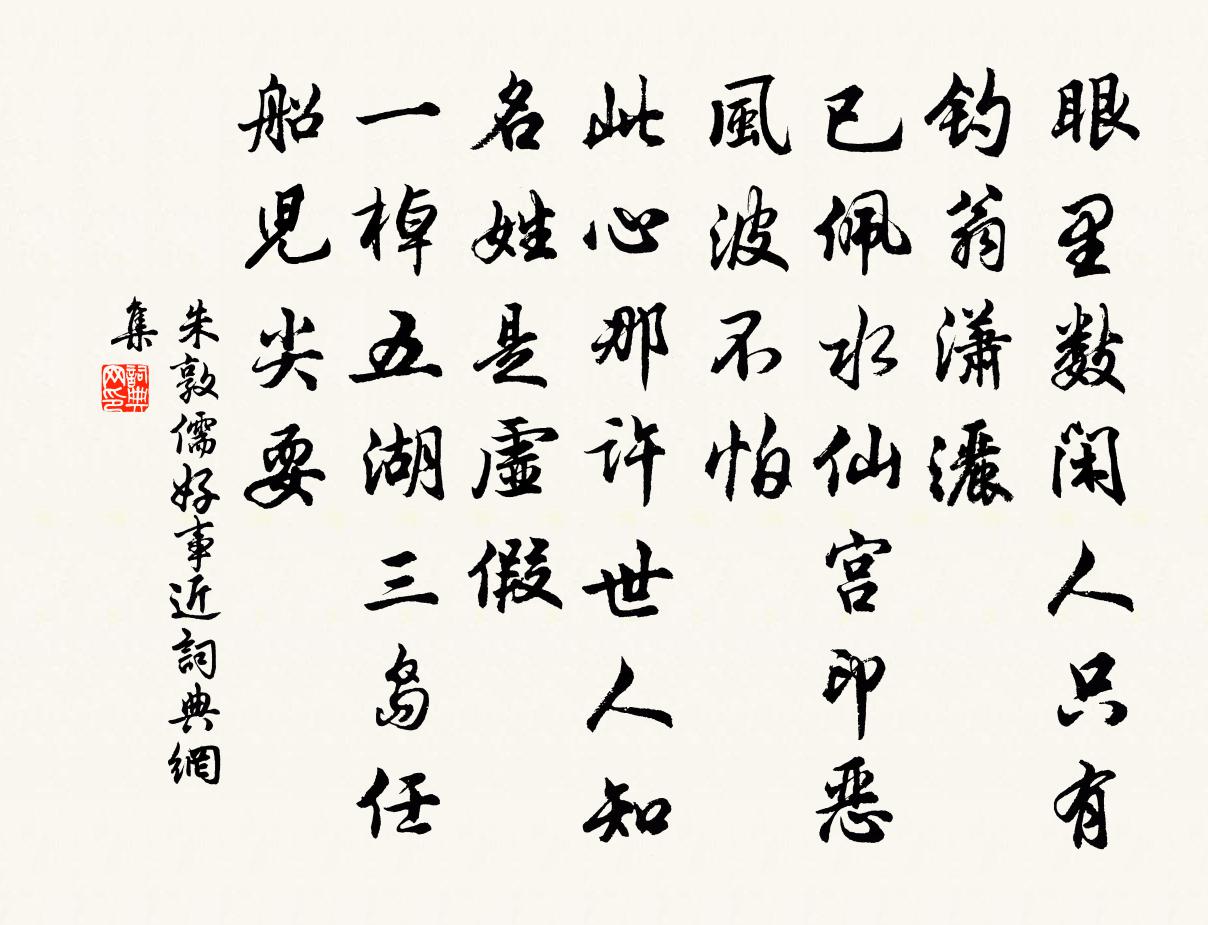 眼里數閑人只有
钓翁瀟灑
已佩水仙宫印惡
風波不怕
此心那许世人知
名姓是虚假
一棹五湖三島任
船兒尖耍
朱敦儒好事近詞典網
集
詞典网印